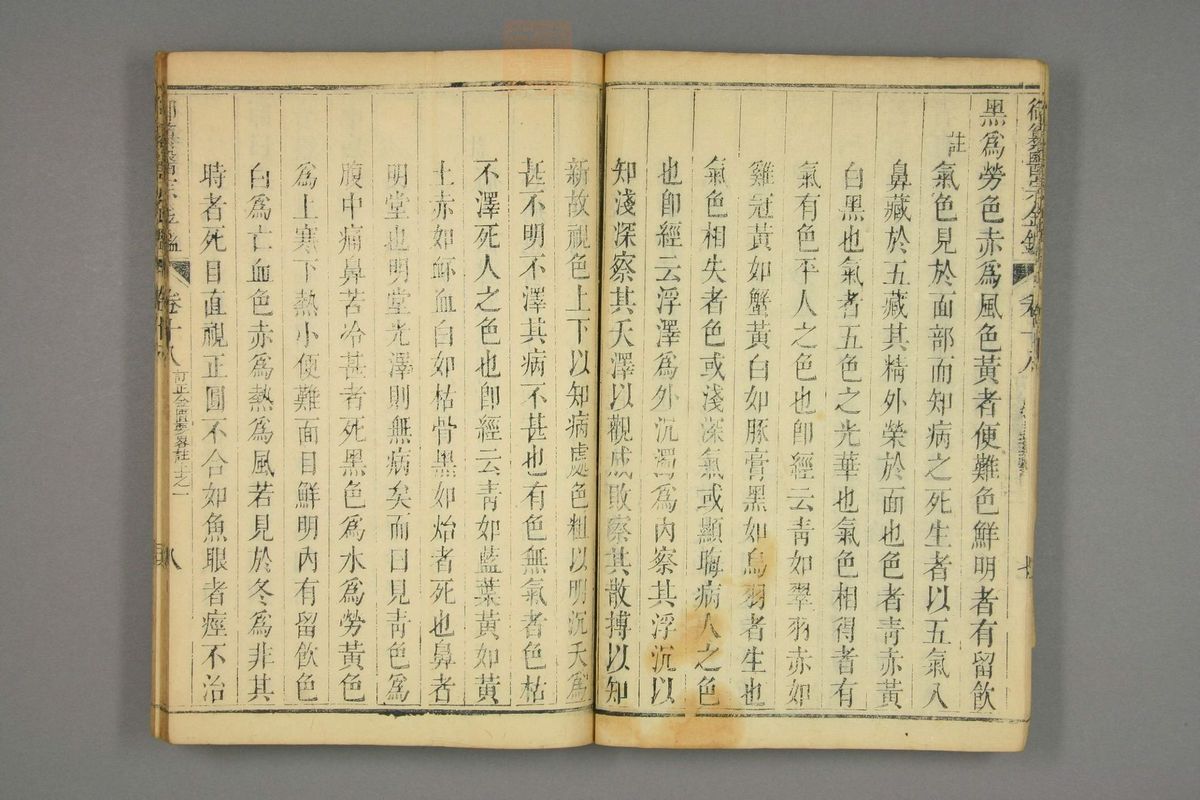 御纂醫宗金鑑
卷十八
黑爲勞色赤爲風色黃者便難色鮮明者有留飲
註
氣色見於面部而知病之死生者以五氣入
鼻藏於五藏其精外榮於面也色者靑赤黃
白黑也氣者五色之光華也氣色相得者有
氣有色平人之色也卽經云靑如翠羽赤如
雞冠黃如蟹黃白如豚膏黑如烏羽者生也
氣色相失者色或淺深氣或顯晦病人之色
也卽經云浮澤爲外沉濁爲內察其浮沉以
知淺深察其夭澤以觀成敗察其散搏以知
新故視色上下以知病處色粗以明沉夭爲
甚不明不澤其病不甚也有色無氣者色枯
不澤死人之色也卽經云靑如藍葉黃如黃
土赤如衃血白如枯骨黑如炲者死也鼻者
明堂也明堂光澤則無病矣而曰見靑色爲
腹中痛鼻苦冷甚者死黑色爲水爲勞黃色
爲上寒下熱小便難面目鮮明內有留飲色
白爲亡血色赤爲熱爲風若見於冬爲非其
時者死目直視正圓不合如魚眼者痙不治
御纂醫宗金鑑
卷十八
訂正金匱要畧註之一
八